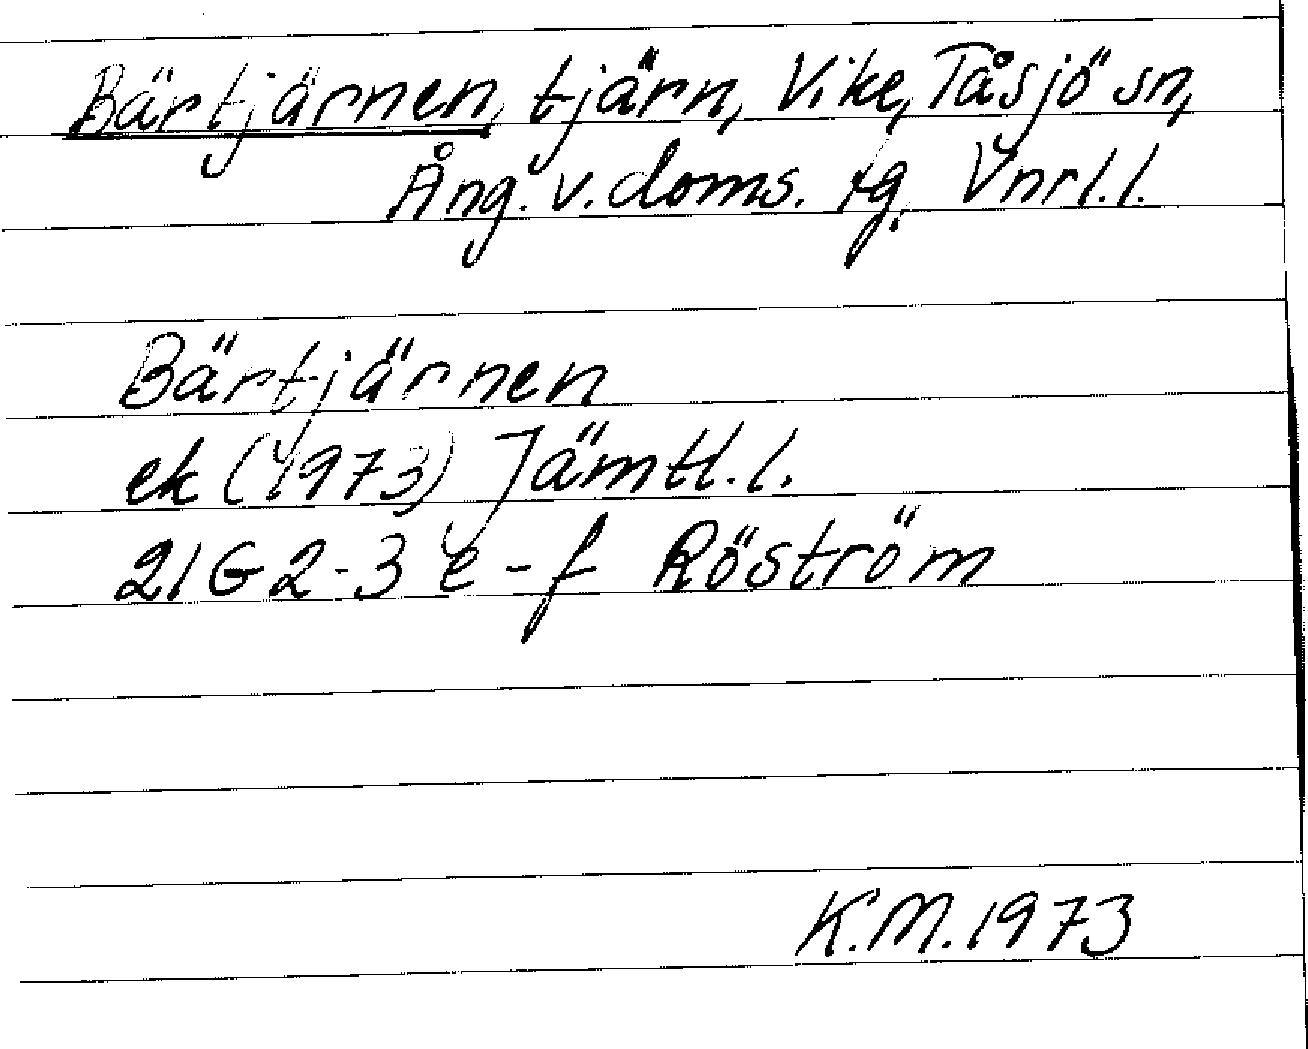 Bärtjärnen, tjärn, Vike, Tåsjö sn,
Ång. v. doms. tg. Vnrl.l.
Bärtjärnen
ek (1973) Jämtl.l.
21G 2-3 e-f Röström
K.M.1973